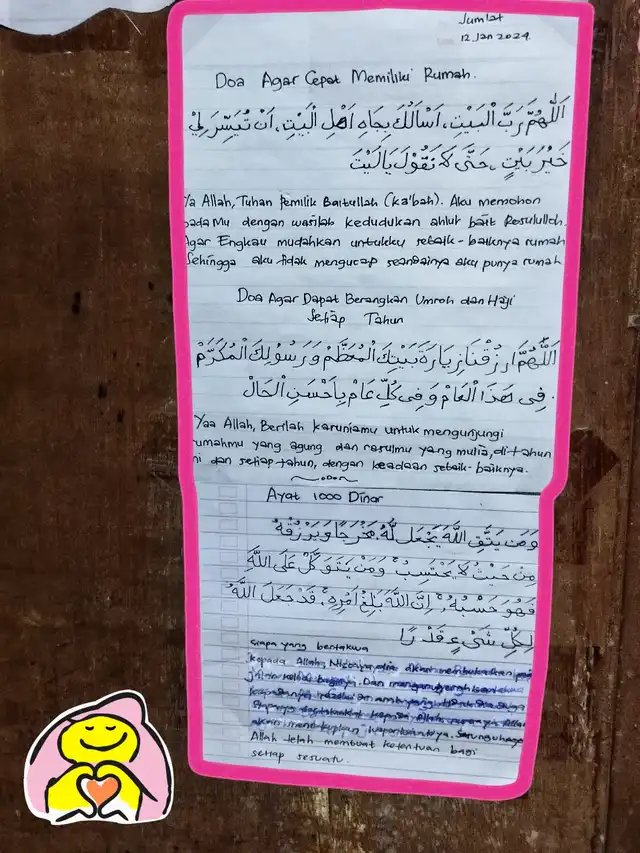 Jumlat
12 Jan 2024
Doa Agar Cepat Memiliki Rumah.
اَللّٰهُمَّ رَبَّ الْبَيْتِ، اَسْأَلُكَ بِجَاهِ اَهْلِ الْبَيْتِ، اَنْ تُيَسِّرَ لِيْ
خَيْرُ بَيْتٍ، حَتَّى لَا نَقُوْلَ يَالَيْتَ
Ya Allah, Tuhan Pemilik Baitullah (ka'bah). Aku memohon
padaMu dengan wasilah kedudukan ahlul bait Rosulullah.
Agar Engkau mudahkan untukku sebaik-baiknya rumah
Sehingga aku tidak mengucap seandainya aku punya rumah
Doa Agar Dapat Berangkan Umroh dan Haji
Setiap Tahun
اَللّٰهُمَّ ارْزُقْنَا زِيَارَةَ بَيْتِكَ الْمُعَظَّمْ وَرَسُوْلِكَ الْمُكَرَّمْ
فِى هٰذَا الْعَامْ وَفِى كُلِّ عَامْ بِاَحْسَنِ الْحَالْ.
Yaa Allah, Berilah karuniamu untuk mengunjungi
umahmu yang agung dan rasulmu yang mulia, di tahun
ni dan setiap tahun, dengan keadaan sebaik-baiknya.
Ayat 1000 Dinar
وَمَن يَتَّقِ اللّٰهَ يَجْعَل لَّهُ مَخْرَجًا وَيَرْزُقْهُ
مِنْ حَيْثُ لَا يَحْتَسِبُ ۚ وَمَنْ يَتَوَكَّلْ عَلَى اللّٰهِ
فَهُوَ حَسْبُهُ ۚ اِنَّ اللّٰهَ بَالِغُ اَمْرِهِ ۚ قَدْ جَعَلَ اللّٰهُ
لِكُلِّ شَيْءٍ قَدْرًا
siapa yang bertakwa
kepada Allah, Niscaya dia akan membukakan
jalan keluar baginya. Dan
Allah
akan mencukupkan keperluannya. Sesungguhnya
Allah telah membuat ketentuan bagi
setiap sesuatu.